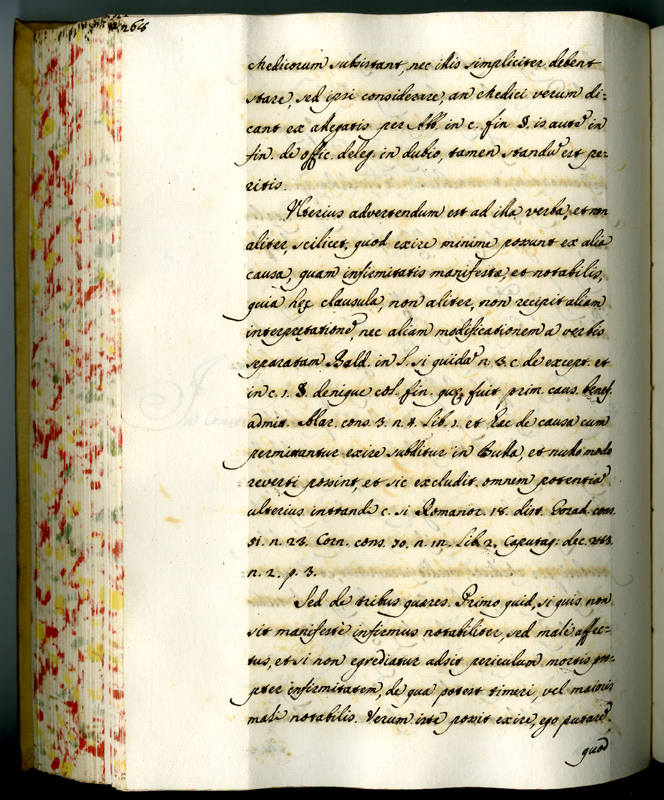 Medicorum subsistant, nec illis simpliciter debent
stare, sed ipsi considerare, an Medici verum di=
cant ex allegatis per Abb. in c. fin §. is autẽ in
fin. de offic. deleg. in dubio, tamen standũ est pe=
ritis.
Ulterius advertendum est ad illa verba, et non
aliter, scilicet, quod exire minime possunt ex alia
causa, quam infirmitatis manifestæ, et notabilis,
quia hęc clausula, non aliter, non recipit aliam
interpretationẽ, nec aliam modificationem a verbis
separatam Bald. in l. si quidã n. 3. c. de except. et
in c. 1. §. denique col. fin. quę fuit prim. caus. benef.
admit. Mar. cons. 3. n. 4. Lib. 1. et hac de causa cum
permittantur exire subditur in Bulla, et nullo modo
reverti possint, et sic excludit omnem potentiã
ulterius intrandi c. si Romanor. 18. dist. Gozad. cons.
51. n. 23. Corn. cons. 70. n. in. Lib. 2. Caputaq: dec. 283.
n. 2. p. 3.
Sed de tribus quæres. Primo quid, si quis non
sit manifestè infirmus notabiliter, sed malè affec=
tus, et si non egrediatur adsit periculum mortis pro=
pter infirmitatem, de qua potest timeri, vel maioris
mali notabilis. Utrum iste possit exire, ego putarẽ
quod